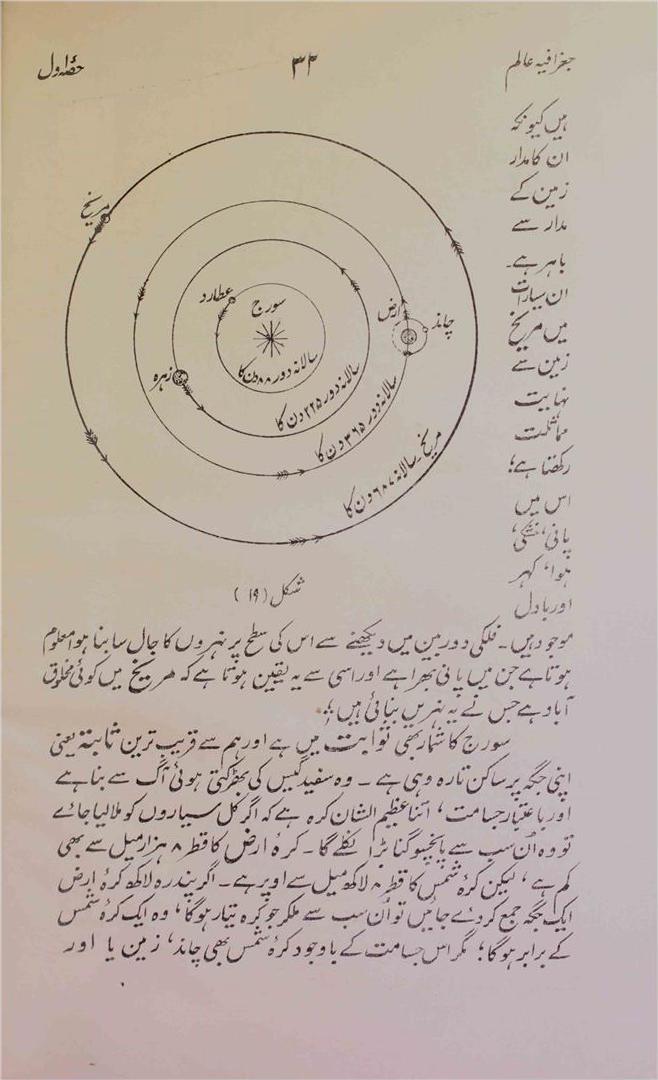 جغرافیہ عالم
۳۲
حصۂ اول
ہیں کیونکہ
ان کا مدار
زمین کے
مدار سے
باہر ہے۔
ان سیارات
میں مریخ
زمین سے
نہایت
مماثلت
رکھتا ہے؛
اس میں
پانی، خشکی،
ہوا، کہر
اور بادل
مریخ
عطارد
سورج
ارض
چاند
زہرہ
سالانہ دور ۸۸ دن کا
سالانہ دور ۲۲۵ دن کا
سالانہ دور ۳۶۵ دن کا
مریخ۔ سالانہ ۶۸۷ دن کا
شکل (۱۹)
موجود ہیں۔ فلکی دوربین میں دیکھنے سے اس کی سطح پر نہروں کا جال سا بنا ہوا معلوم
ہوتا ہے جن میں پانی بھرا ہے اور اسی سے یہ یقین ہوتا ہے کہ مریخ میں کوئی مخلوق
آباد ہے جس نے یہ نہریں بنائی ہیں؛
سورج کا شمار بھی ثوابت میں ہے اور ہم سے قریب ترین ثابتہ یعنی
اپنی جگہ پر ساکن تارہ وہی ہے۔ وہ سفید گیس کی بھڑکتی ہوئی آگ سے بنا ہے
اور باعتبار جسامت، اتنا عظیم الشان کرہ ہے کہ اگر کل سیاروں کو ملا لیا جائے
تو وہ اُن سب سے پانچسو گنا بڑا نکلے گا۔ کرۂ ارض کا قطر ۸ ہزار میل سے بھی
کم ہے، لیکن کرۂ شمس کا قطر ۸ لاکھ میل سے اوپر ہے۔ اگر پندرہ لاکھ کرۂ ارض
ایک جگہ جمع کر دے جائیں تو اُن سب سے ملکر جو کرہ تیار ہوگا، وہ ایک کرۂ شمس
کے برابر ہوگا؛ مگر اس جسامت کے باوجود کرۂ شمس بھی چاند، زمین یا اور